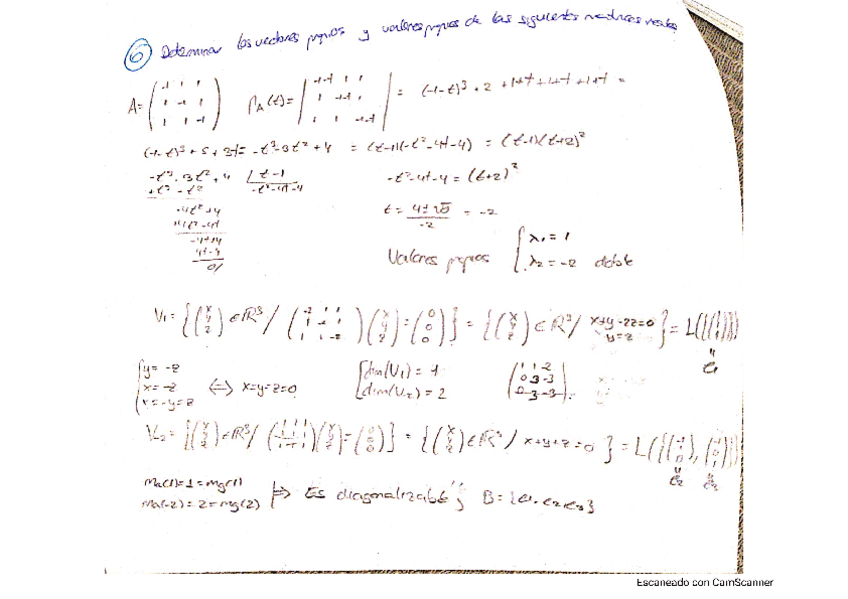 6 Determinar los vectores propios y valores propios de las siguientes matrices reales
A = (-1 1 1 / 1 -1 1 / 1 1 -1) P_A(t) = |-1-t 1 1 / 1 -1-t 1 / 1 1 -1-t| = (-1-t)³ + 2 + 1+t + 1+t + 1+t =
(-1-t)³ + 5 + 3t = -t³-3t²+4 = (t-1)(-t²-4t-4) = (t-1)(t+2)²
-t³-3t²+4 | t-1 -t²-4t-4 = (t+2)²
+t³-t² -t²-4t-4
-4t²+4 t = 4±√0 / -2 = -2
+4t²-4t
-4t+4 Valores propios { λ₁ = 1
4t-4 λ₂ = -2 doble
0/
V₁ = {(x y z) ∈ ℝ³ / (-2 1 1 / 1 -2 1 / 1 1 -2)(x y z) = (0 0 0)} = {(x y z) ∈ ℝ³ / x+y-2z=0 y=z} = L({(1 1 1)})
e₁
{ y = -z
x = -z ⟺ x=y=z=0 { dim(V₁) = 1 (1 1 -2 / 0 3 -3 / 0 -3 -3)
x = -y = z dim(V₂) = 2
V₂ = {(x y z) ∈ ℝ³ / (1 1 1 / 1 1 1 / 1 1 1)(x y z) = (0 0 0)} = {(x y z) ∈ ℝ³ / x+y+z=0} = L({(-1 1 0), (-1 0 1)})
e₂ e₃
ma(1)=1=mg(1)
ma(-2)=2=mg(2) ⟹ Es diagonalizable; B = {e₁, e₂, e₃}
Escaneado con CamScanner